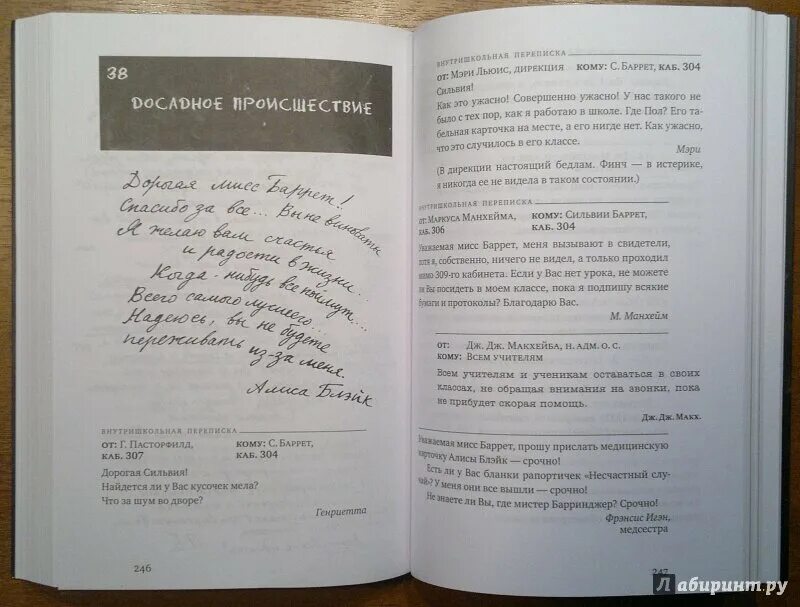 38
ДОСАДНОЕ ПРОИСШЕСТВИЕ
Дорогая мисс Баррет!
Спасибо за все... Вы не виноваты
Я желаю вам счастья
и радости в жизни...
Когда-нибудь все поймут...
Всего самого лучшего...
Надеюсь, вы не будете
переживать из-за меня.
Алиса Блэйк
ВНУТРИШКОЛЬНАЯ ПЕРЕПИСКА
ОТ: Г. ПАСТОРФИЛД, КОМУ: С. БАРРЕТ,
КАБ. 307 КАБ. 304
Дорогая Сильвия!
Найдется ли у Вас кусочек мела?
Что за шум во дворе?
Генриетта
246
ВНУТРИШКОЛЬНАЯ ПЕРЕПИСКА
ОТ: МЭРИ ЛЬЮИС, ДИРЕКЦИЯ КОМУ: С. БАРРЕТ, КАБ. 304
Сильвия!
Как это ужасно! Совершенно ужасно! У нас такого не
было с тех пор, как я работаю в школе. Где Пол? Его та-
бельная карточка на месте, а его нигде нет. Как ужасно,
что это случилось в его классе.
Мэри
(В дирекции настоящий бедлам. Финч — в истерике,
я никогда ее не видела в таком состоянии.)
ВНУТРИШКОЛЬНАЯ ПЕРЕПИСКА
ОТ: МАРКУСА МАНХЕЙМА, КОМУ: СИЛЬВИИ БАРРЕТ,
КАБ. 306 КАБ. 304
Уважаемая мисс Баррет, меня вызывают в свидетели,
хотя я, собственно, ничего не видел, а только проходил
мимо 309-го кабинета. Если у Вас нет урока, не можете
ли Вы посидеть в моем классе, пока я подпишу всякие
бумаги и протоколы? Благодарю Вас.
М. Манхейм
ОТ: ДЖ. ДЖ. МАКХЕЙБА, Н. АДМ. О. С.
КОМУ: ВСЕМ УЧИТЕЛЯМ
Всем учителям и ученикам оставаться в своих
классах, не обращая внимания на звонки, пока
не прибудет скорая помощь.
Дж. Дж. Макх.
Уважаемая мисс Баррет, прошу прислать медицинскую
карточку Алисы Блэйк — срочно!
Есть ли у Вас бланки рапортичек «Несчастный слу-
чай»? У меня они все вышли — срочно!
Не знаете ли Вы, где мистер Барринджер? Срочно!
Фрэнсис Игэн,
медсестра
247
Лабиринт.ру